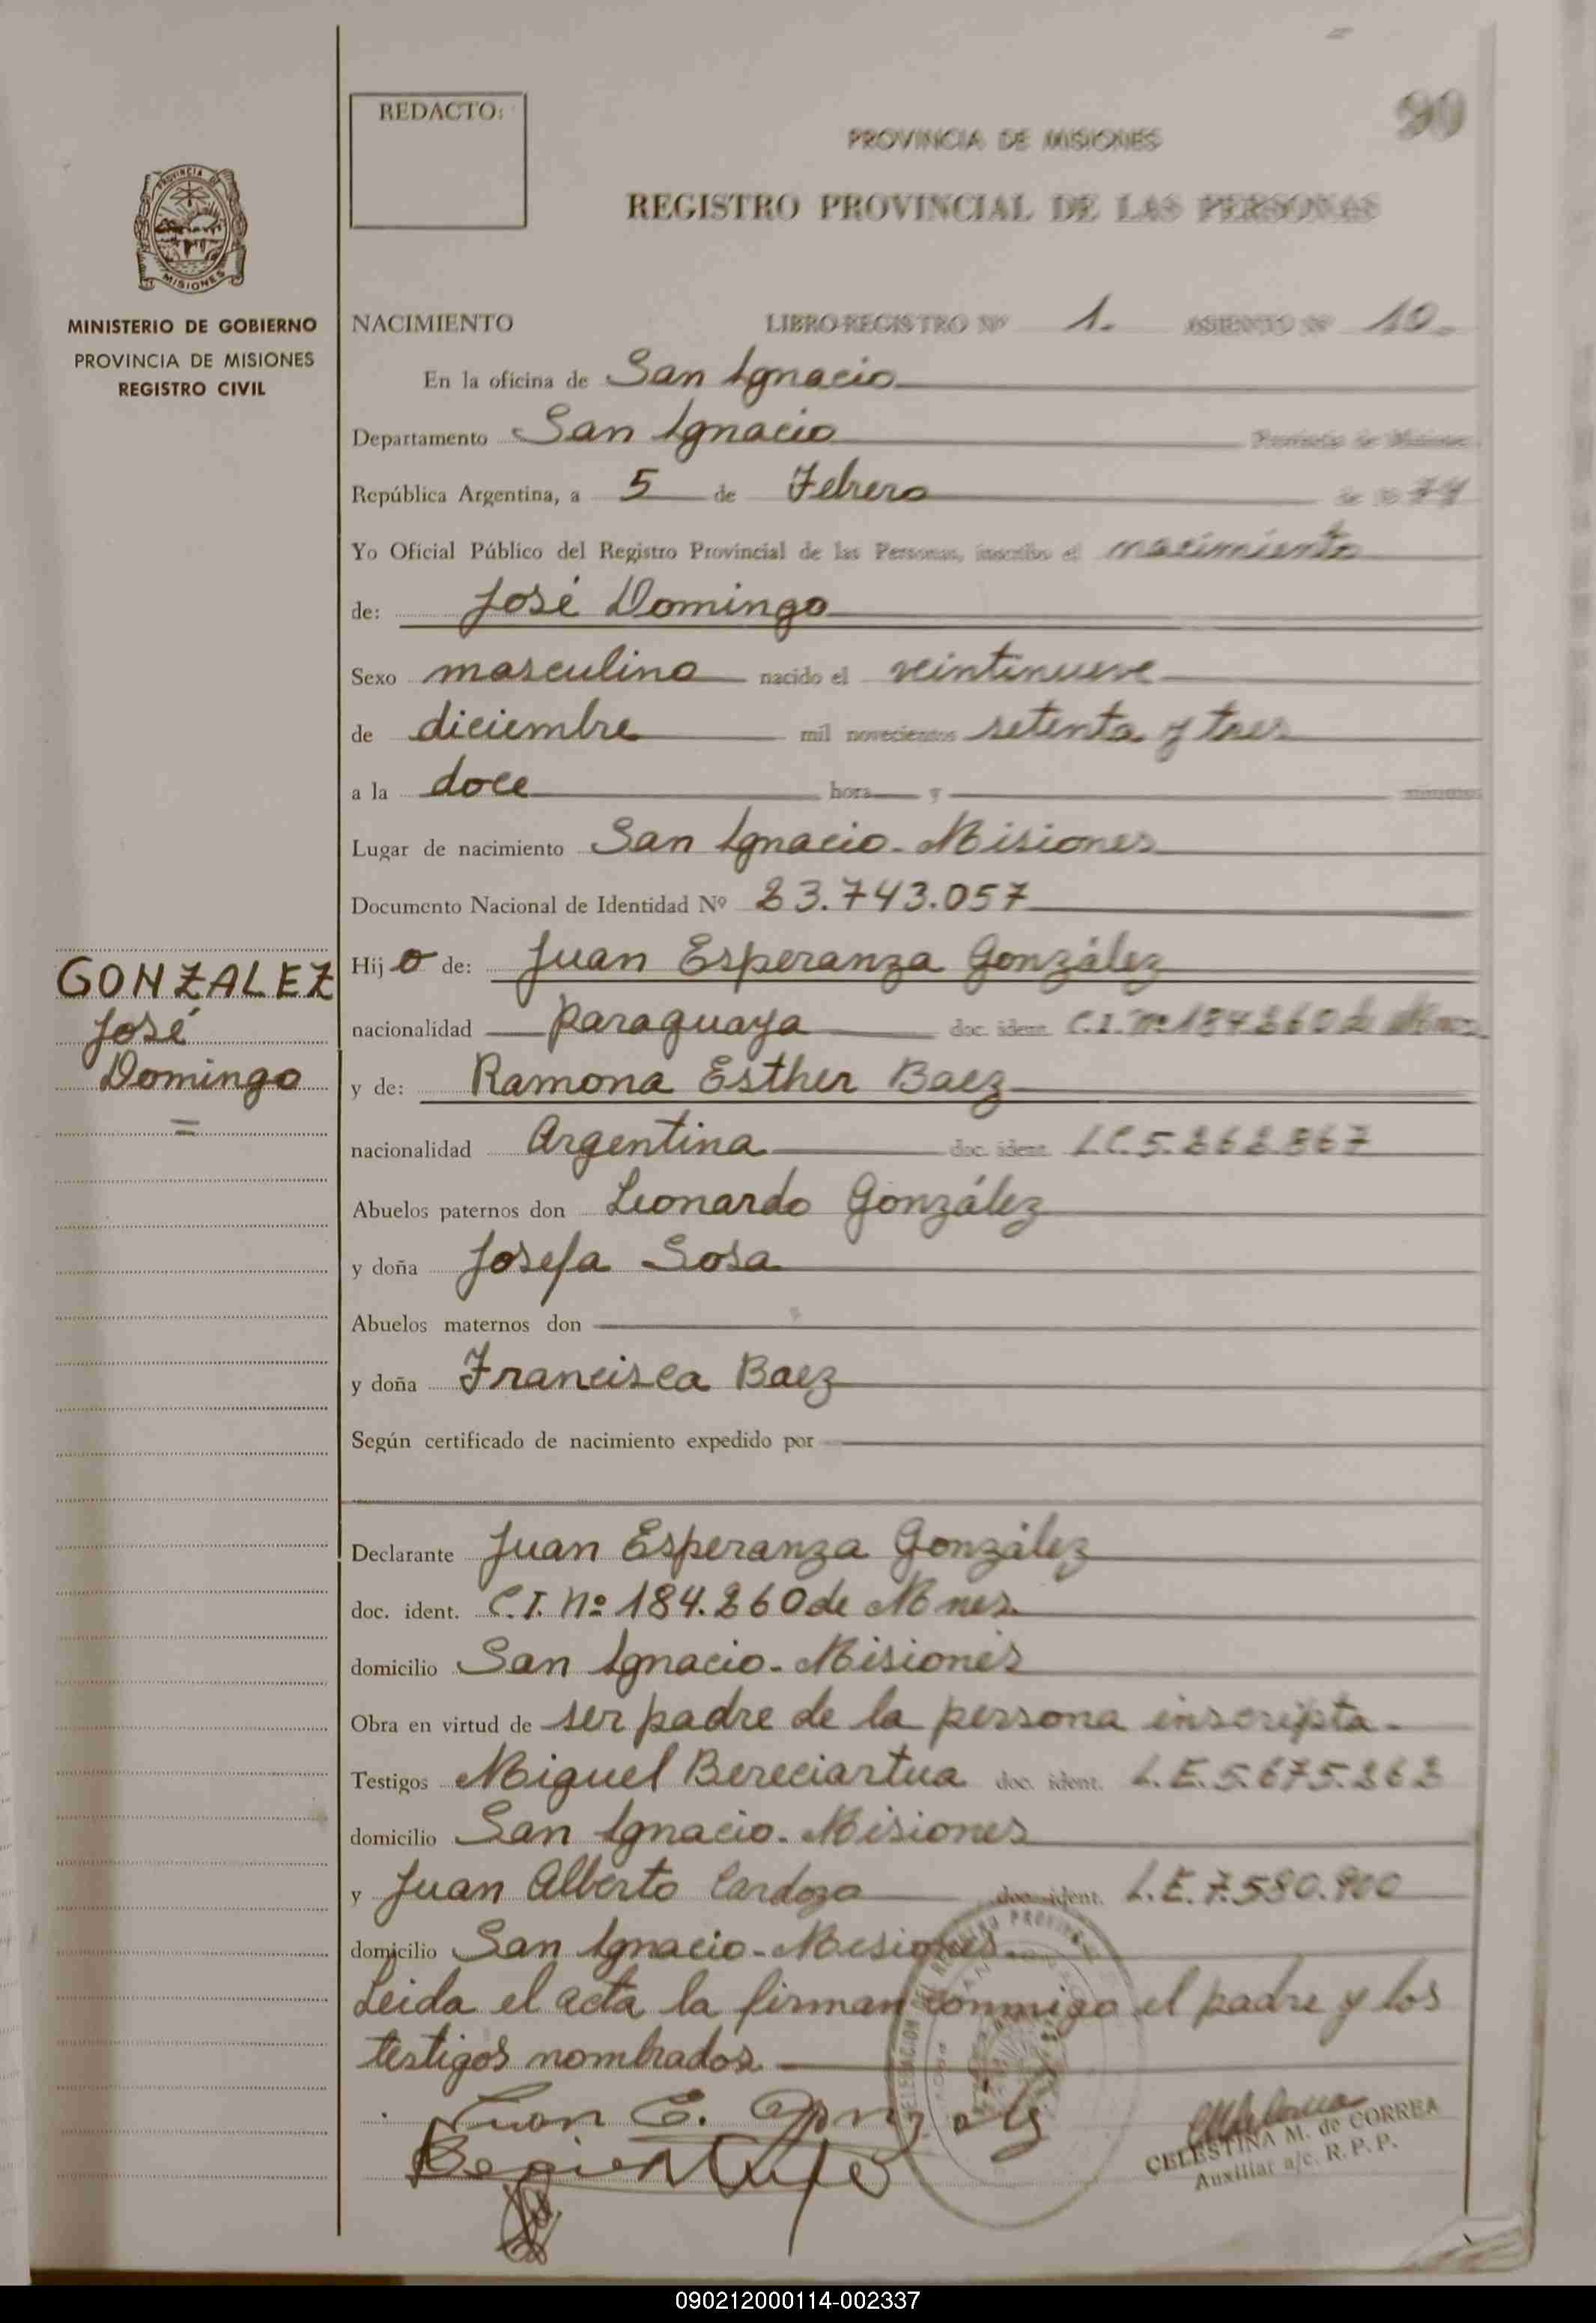 REDACTO:
90
PROVINCIA DE MISIONES
REGISTRO PROVINCIAL DE LAS PERSONAS
PROVINCIA DE
MISIONES
MINISTERIO DE GOBIERNO
PROVINCIA DE MISIONES
REGISTRO CIVIL
NACIMIENTO LIBRO-REGISTRO Nº 1. ASIENTO Nº 10.
En la oficina de San Ignacio
Departamento San Ignacio Provincia de Misiones
República Argentina, a 5 de Febrero de 19 74
Yo Oficial Público del Registro Provincial de las Personas, inscribo el nacimiento
de: José Domingo
Sexo masculino nacido el veintinueve
de diciembre mil novecientos setenta y tres
a la doce hora y minutos
Lugar de nacimiento San Ignacio - Misiones
Documento Nacional de Identidad Nº 23.743.057
GONZALEZ
José
Domingo
=
Hij o de: Juan Esperanza González
nacionalidad paraguaya doc. ident. C.I. Nº 184260 de Mnes
y de: Ramona Esther Baez
nacionalidad Argentina doc. ident. L.C. 5.262.867
Abuelos paternos don Leonardo González
y doña Josefa Sosa
Abuelos maternos don
y doña Francisca Baez
Según certificado de nacimiento expedido por
Declarante Juan Esperanza González
doc. ident. C.I. Nº 184.260 de Mnes.
domicilio San Ignacio - Misiones
Obra en virtud de ser padre de la persona inscripta.
Testigos Miguel Bereciartua doc. ident. L.E. 5.675.262
domicilio San Ignacio - Misiones
y Juan Alberto Cardozo doc. ident. L.E. 7.580.900
domicilio San Ignacio - Misiones.
Leida el acta la firman conmigo el padre y los
testigos nombrados
Juan E. Gonzalez
CELESTINA M. de CORREA
Auxiliar a/c. R. P. P.
090212000114-002337